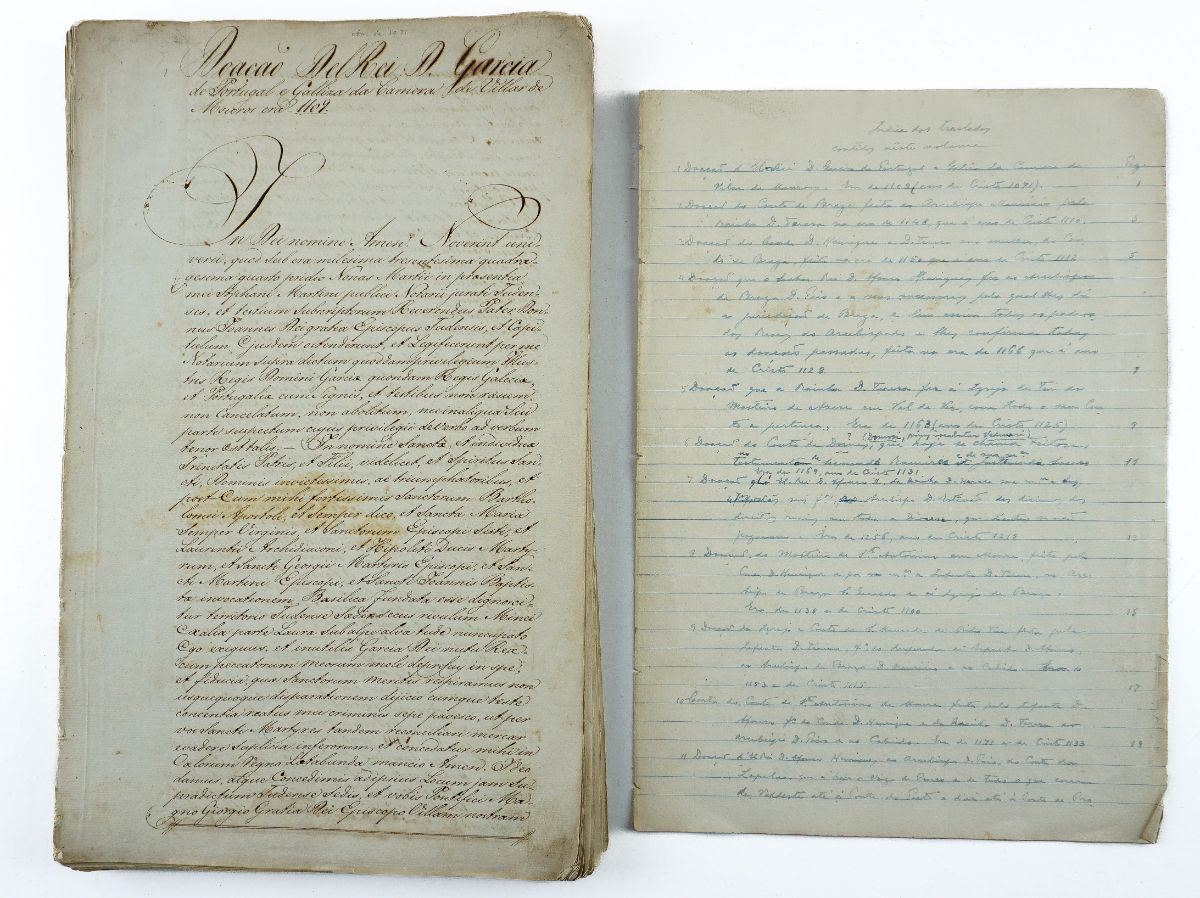 Doação DelRei D. Garcia
de Portugal e Galliza da Camera de Villar de
Moures era 1109.
In Dei nomine Amen. Noverint uni-
versi, quod sub era milesima tresentesima quadra-
gesima quarto pridie Nonas Martii in prasentia
mei Stephani Martini publici Notarii jurati Tuden-
sis, et testium subscriptorum Reverendus Pater Dom-
nus Joannes Dei gratia Episcopus Tudensis, et Capi-
tulum Ejusdem ostenderunt, et Legifecerunt per me
Notarium supra dictum quoddam privilegium Illus-
tris Regis Domini Garcia quondam Regis Galecia,
et Portugalia cum signis, et testibus non rasum,
non Cancelatum, non abolitum, nec in aliqua Sui
parte suspectum cujus privilegii de verbo ad verbum
tenor est talis — In nomine Sancta, et individua
Trinitatis Patris, et Filii, videlicet, et Spiritus San-
cti, Dominis invictissimis, ac triumphatoribus, et
post Cum mihi fortissimis Sanctorum Bartho-
lomei Apostoli, et semper dico, et Sancta Maria
Semper Virginis, et Sanctorum Episcopi Sisti, et
Laurentii Archidiaconi, et Hipoliti Ducis Marty-
rum, et Sancti Georgii Martyris Episcopi, et San-
cti Martini Episcopi, et Sancti Joannis Baptis-
ta invocationem, Basilica fundata esse dignosci-
tur territorio Tudense Sadin secus rivulum Minei
Ex alia parte Laura Subalpe alva tude nuncupato
Ego exiguus, et inutilis Garcia Dei nutu Rex
Cum peccatorum meorum mole depressus in spe,
et fiducia, qua Sanctorum meritis respiramus non
usquequaque disparationem dejicio cumque teste
concentia reatus mei criminis sepe pavesco, ut per
vos Sancti Martyres tandem reconciliari mercar
evadere Suplisia inferorum, et concedatur mihi in
Calorum Regno Latabunda mancio Amen. Ideo
damus, atque Concedimus ad ipsius Locum jam Su-
pradictum Tudense Sedis, et vobis Pontifice Ma-
gno Giorgio Gratia Dei Episcopo Villam nostram
Indice dos traslados
contidos neste volume
Pag.
1 Doação d'ElRei D. Garcia de Portugal e Galiza da Camara de
Vilar de Mouros. Era de 1109 (ano de Cristo 1071). 1
2 Doaçaõ do Couto de Braga feita ao Arcebispo Mauricio pela
Rainha D. Teresa na era de 1148, que é ano de Cristo 1110. 3
3 Doaçaõ do Conde D. Henrique e D. Teresa sua mulher, do Cou-
to de Braga, feita na era de 1150 que é ano de Cristo 1112 5
4 Doaçaõ que o Senhor Rei D. Afonso Henriques fez ao arcebispo
de Braga D. Paio e a seus sucessores pela qual lhes dá
a jurisdição de Braga, e bem assim todos os padroa-
dos Reais ao Arcebispado e lhes confirma todas
as doacões passadas, feita na era de 1166 que é ano
de Cristo 1128 7
5 Doaçaõ que a Rainha D. Teresa fez á Igreja de Tui do
Mosteiro de Azere em Val de Vez, com todo o seu Cou-
to e pertenças. Era de 1163 (ano de Cristo 1125) 9
6 Doaçaõ do Couto de
Era de 1169, ano de Cristo 1131 11
7 Doaçaõ que ElRei D. Afonso
Arcebispo D. Estevaõ dos dizimos dos
direitos reais, em toda a Diocese,
Era de 1256, ano de Cristo 1218 13
8 Doaçaõ do Mosteiro de Sto Antonino em Moure feita pelo
Conde D. Henrique e por sua mer a Infanta D. Teresa, ao Arce-
bispo de Braga S. Geraldo e á Igreja de Braga.
Era de 1138 e de Cristo 1100 15
9 Doaçaõ da Igreja e Couto de feita pela
Infanta D. Teresa, fa do Imperador
ao Arcebispo de Braga D. Mauricio e ao Cabido. Era de
1153 e de Cristo 1115 17
10 Carta do Couto de Sto Antonino de Moure feita pelo Infante D.
Afonso fo do Conde D. Henrique e da Rainha D. Teresa ao
arcebispo D. Paio e ao Cabido. Era de 1171 e de Cristo 1133 19
11 Doaçaõ d'ElRei D. Afonso Henriques ao Arcebispo D. Paio, do Couto da